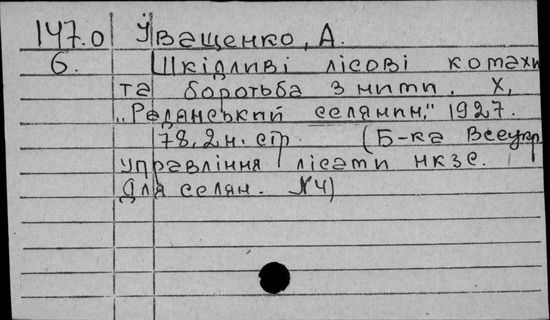 147.0 Іващенко, А.
б. Шкідливі лісові комахи
та боротьба з ними. Х,
„Радянський селянин," 1927.
78, 2 н. стр. (Б-ка Всеукр.
управління лісами НКЗС.
Для селян. №4)